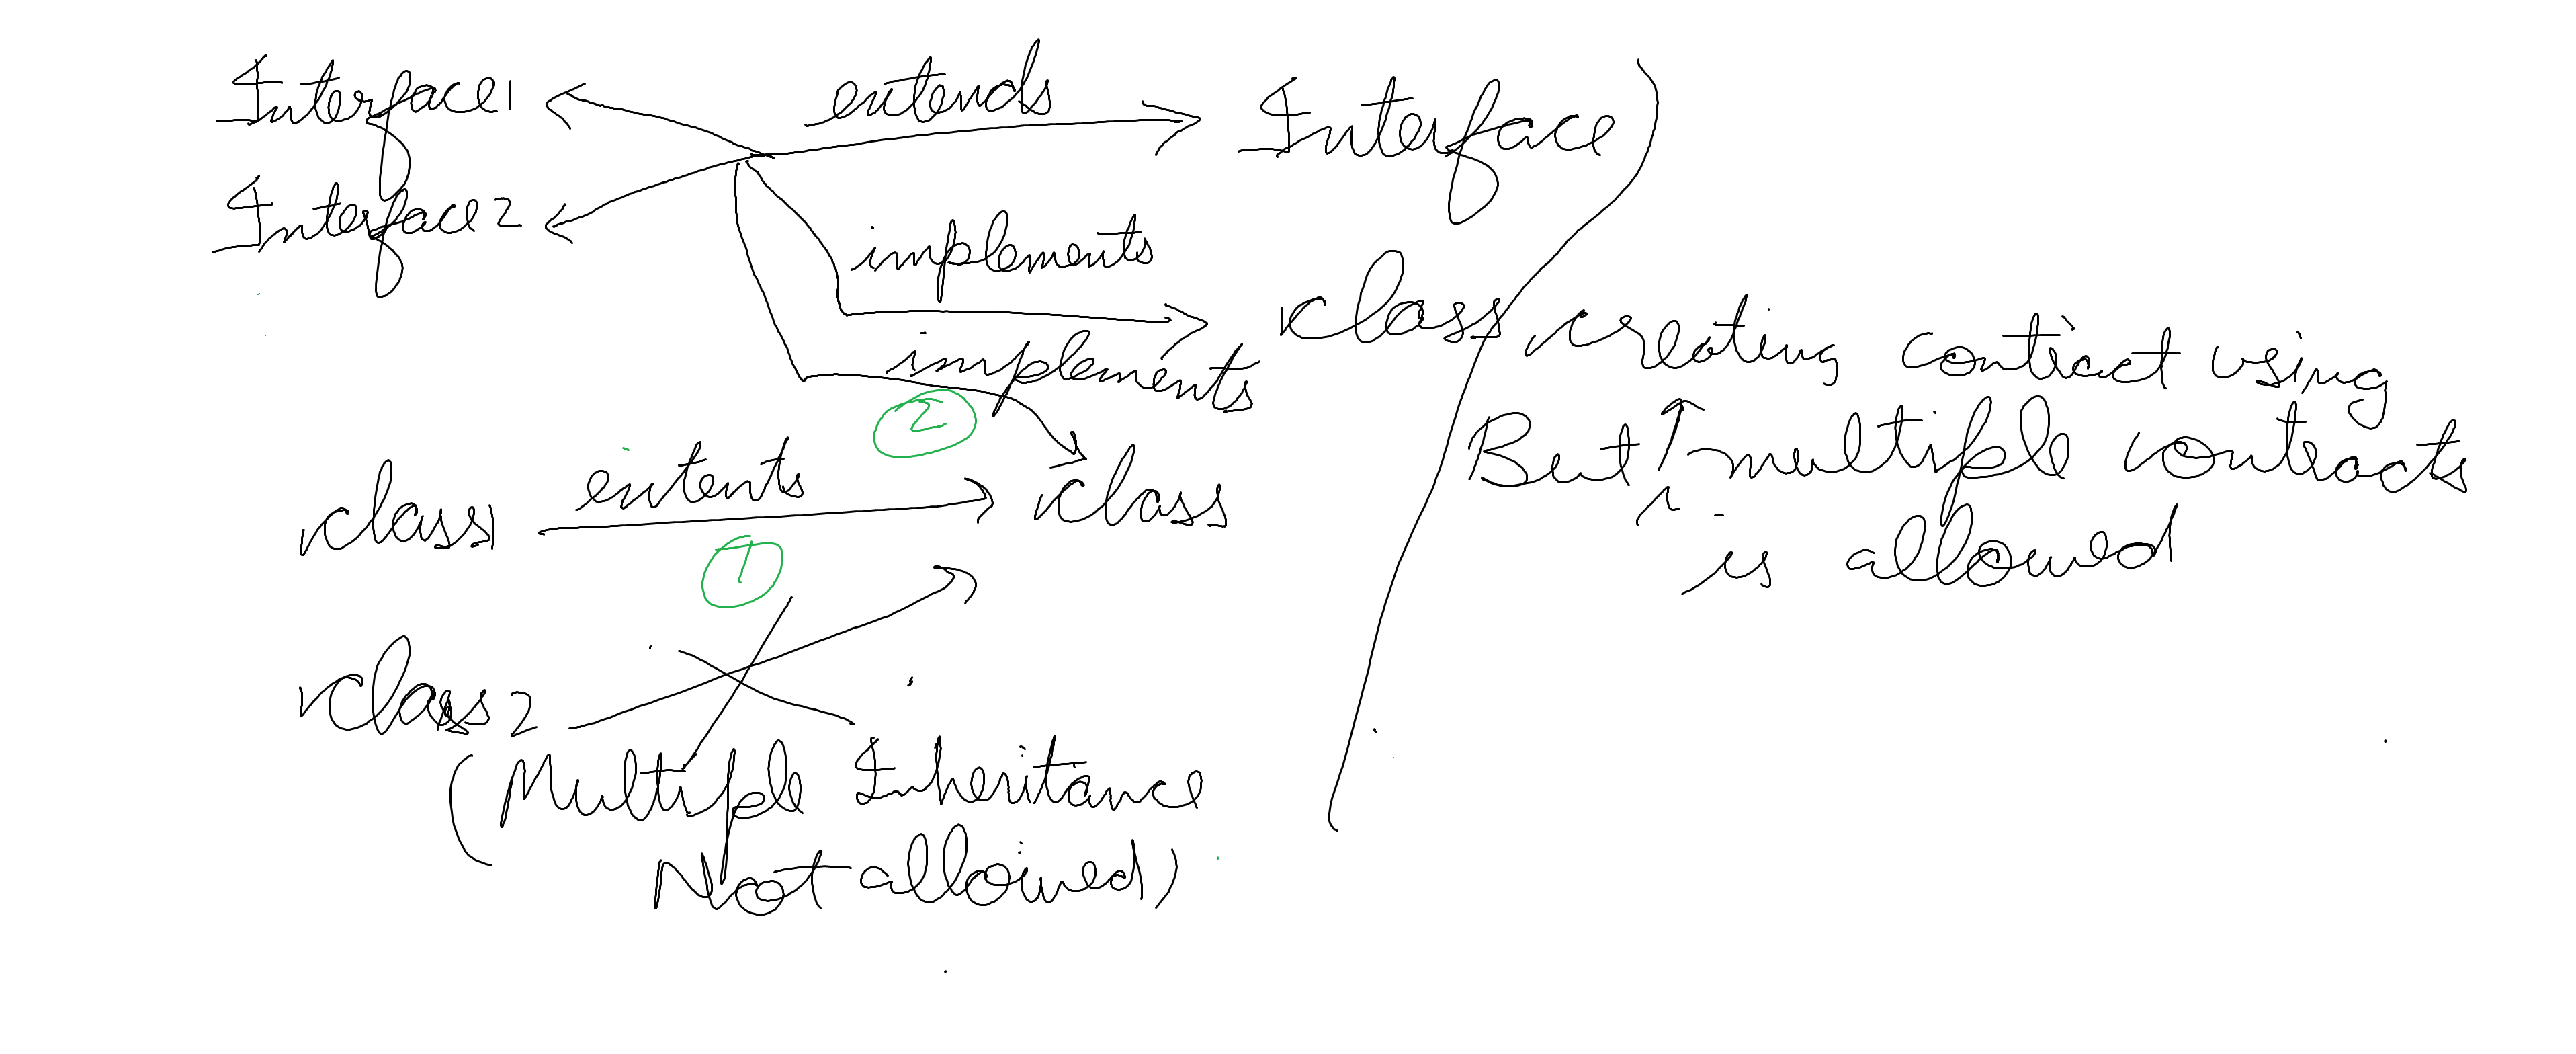 Interface1
extends
Interface
Interface2
implements
class
implements
②
class1
extents
class
①
class2
(Multiple Inheritance
Not allowed)
creating contract using
But multiple contracts
is allowed